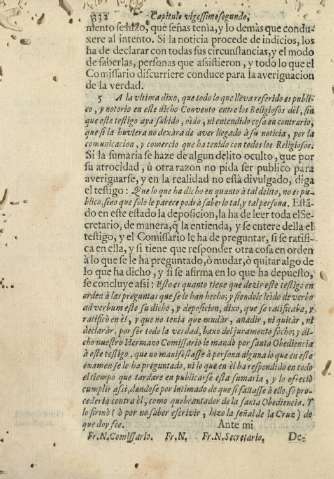 332 Capitulo vigessimosegundo,
miento se hizo, que señas tenia, y lo demàs que condu-
xere al intento. Si la noticia procede de indicios, los
ha de declarar con todas sus circunstancias, y el modo
de saberlas, personas que assistieron, y todo lo que el
Comissario discurriere conduce para la averiguacion
de la verdad.
5 A la vltima dixo, que todo lo que lleva referido es publi-
co, y notorio en este dicho Convento entre los Religiosos dèl, sin
que este testigo aya sabido, oìdo, ni entendido cosa en contrario,
que si la huviera no dexàra de aver llegado à su noticia, por la
comunicacion, y comercio que ha tenido con todos los Religiosos.
Si la sumaria se haze de algun delito oculto, que por
su atrocidad, ù otra razon no pida ser publico para
averiguarse, y en la realidad no està divulgado, diga
el testigo: Que lo que ha dicho en quanto à tal delito, no es pu-
blico, sino que solo le parece podrà saberlo tal, y tal persona. Està-
do en este estado la deposicion, la ha de leer toda el Se-
cretario, de manera, q̃ la entienda, y se entere della el
testigo, y el Comissario le ha de preguntar, si se ratifi-
ca en ella, y si tiene que responder otra cosa en orden
à lo que se le ha preguntado, ò mudar, ò quitar algo de
lo que ha dicho, y si se afirma en lo que ha depuesto,
se concluye assi: Esto es quanto tiene que dezir este testigo en
orden à las preguntas que se le han hecho; y siendole leìdo de verbo
ad verbum este su dicho, y deposicion, dixo, que se ratificava, y
ratificò en èl, y que no tenia que mudar, añadir, ni quitar, ni
declarar, por ser todo la verdad, baxo del juramento fecho; y di-
cho nuestro Hermano Comissario le mandò por santa Obediencia
à este testigo, que no manifestasse à persona alguna lo que en este
examen se le ha preguntado, ni lo que en èl ha respondido en todo
el tiempo que tardare en publicarse esta sumaria, y lo ofreciò
cumplir assi, dandose por intimado de que si faltasse à ello, se pro-
cederia contra èl, como quebrantador de la santa Obediencia. Y
lo firmò ( ò por no saber escrivir, hizo la señal de la Cruz ) de
que doy fee. Ante mi
Fr. N. Comissario. Fr. N. Fr. N. Secretario. De-